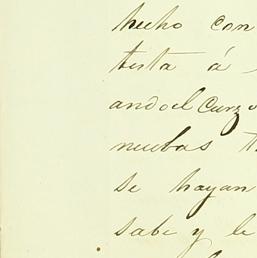 hecho con
testa á
ando el Curzo
muchas
se hayan
sabe y le